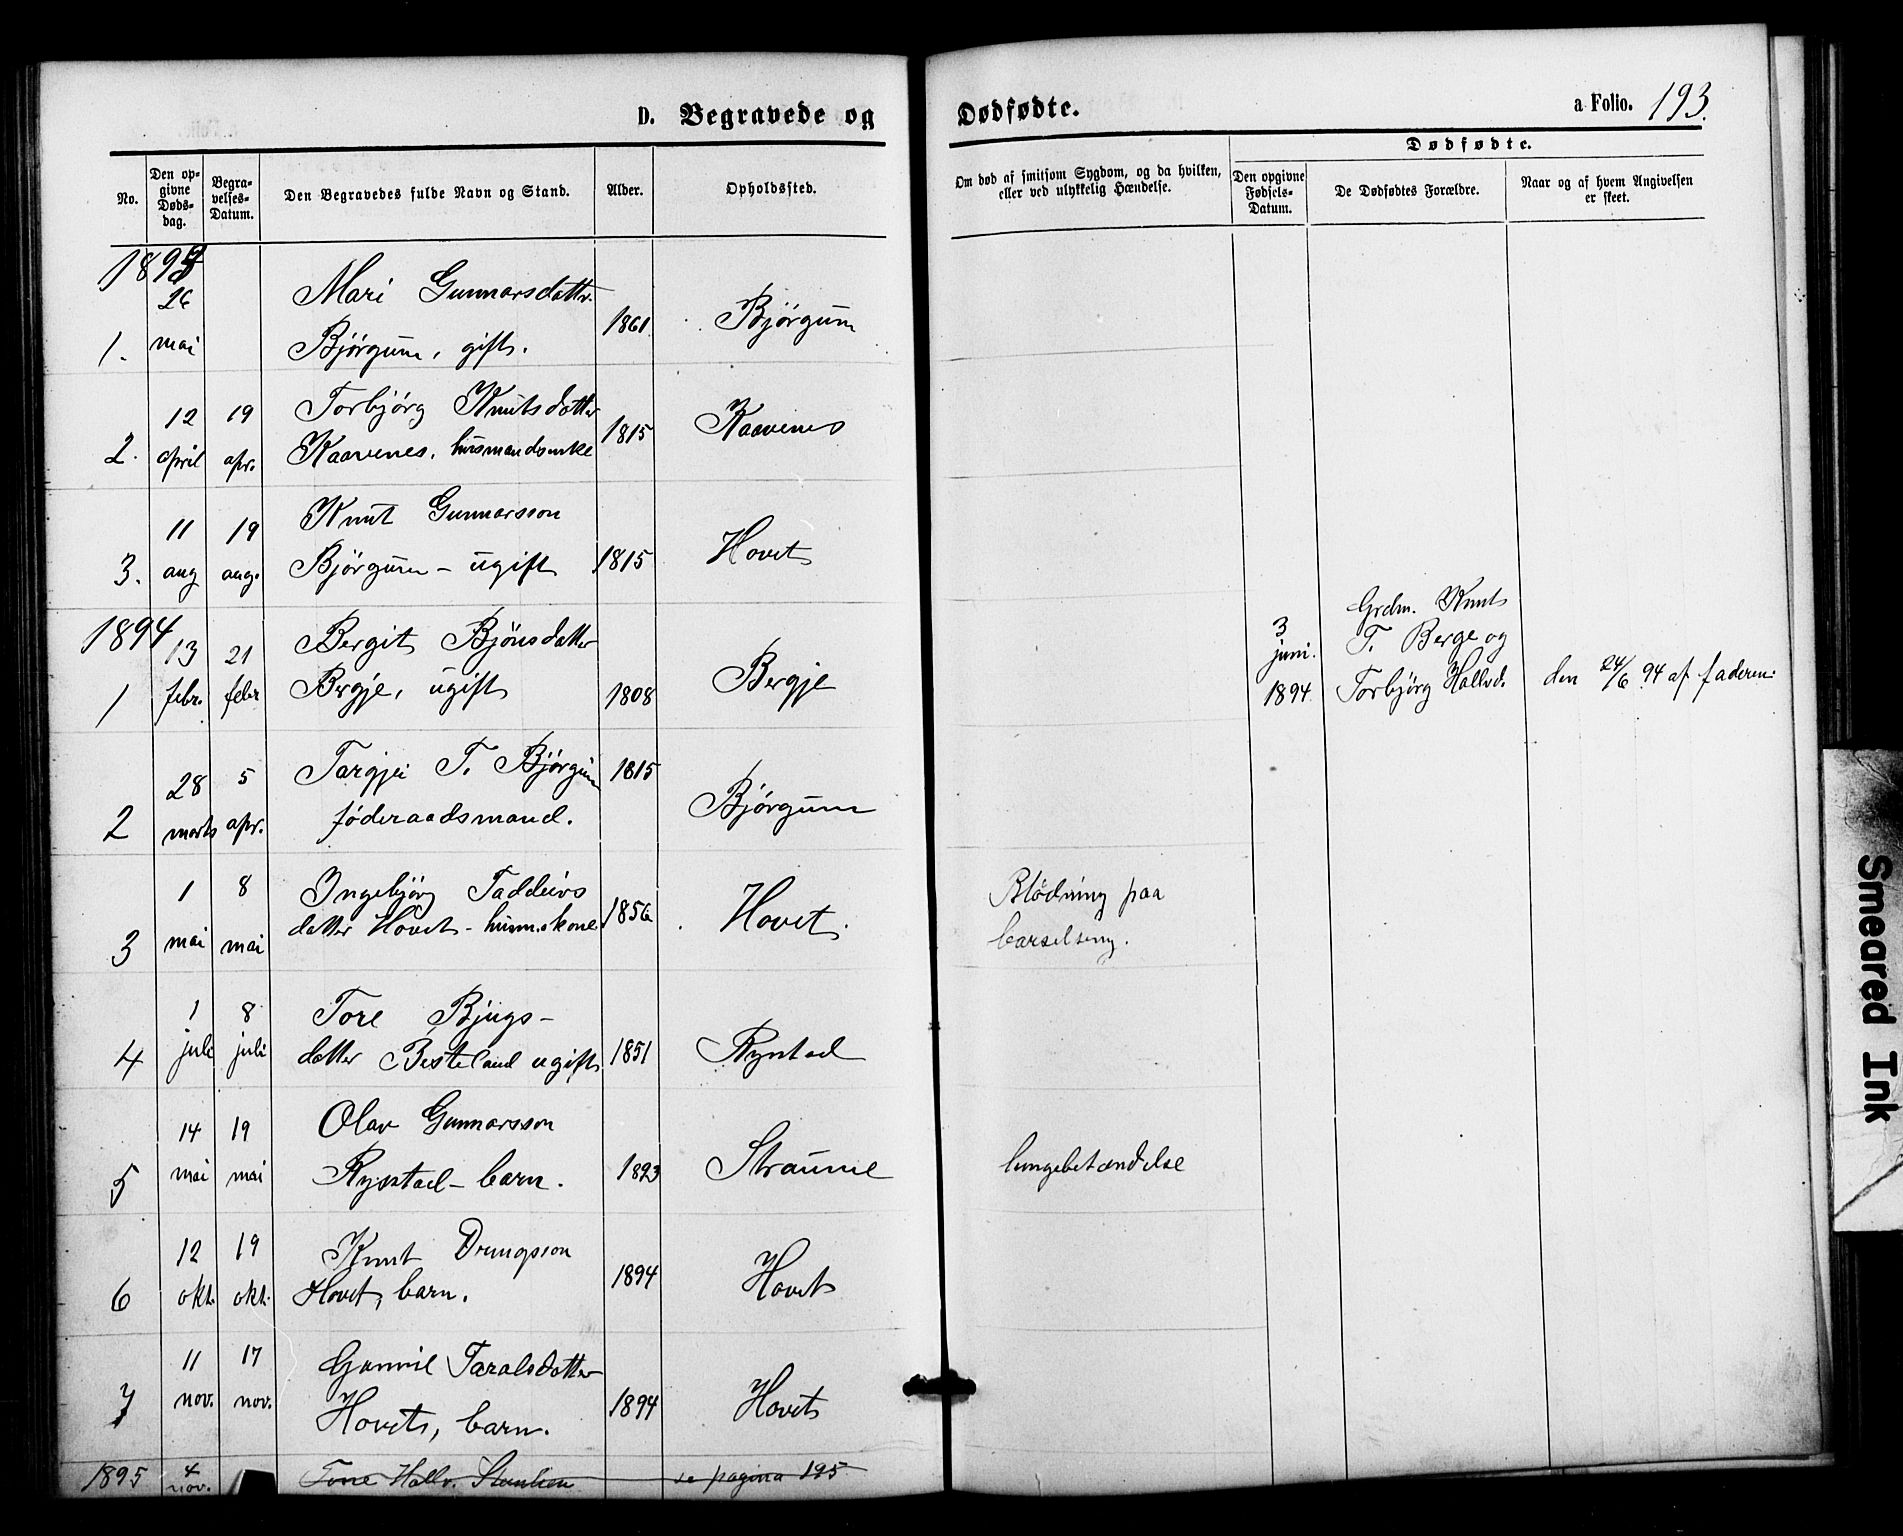 D. Begravede og Dødfødte.
a Folio. 193.
No.
Den op-
givne
Døds-
dag.
Begra-
velses-
Datum.
Den Begravedes fulde Navn og Stand.
Alder.
Opholdssted.
Om død af smitsom Sygdom, og da hvilken,
eller ved ulykkelig Hændelse.
Dødfødte.
Den opgivne
Fødsels-
Datum.
De Dødfødtes Forældre.
Naar og af hvem Angivelsen
er skeet.
1893
1. 26 mai
Mari Gunnarsdatter
Bjørgum, gift.
1861 Bjørgum
2. 12 april 19 apr.
Torbjørg Knutsdatter
Kaavenes, husmandsenke
1815 Kaavenes
3. 11 aug 19 aug.
Knut Gunnarsson
Bjørgum - ugift
1815 Hovet
1894
1 13 febr. 21 febr
Bergit Bjönsdatter
Bergje, ugift
1808 Bergje
3
juni.
1894
Grdm. Knut
T. Berge og
Torbjörg Hallvd.
den 24/6 94 af faderen.
2 28 marts 5 apr.
Targjei T. Bjørgum
föderaadsmand.
1815 Bjørgum
3 1 mai 8 mai
Ingebjörg Taddeivs
datter Hovet - husm.kone
1856 Hovet.
Blödning paa
barselseng.
4 1 juli 8 juli
Tore Bjugs-
datter Besteland ugift
1851 Rysstad
5 14 mai 19 mai
Olav Gunnarsson
Rysstad - barn.
1893 Straume
lungebetændelse
6 12 okt. 19 okt.
Knut Drengsson
Hovet, barn.
1894 Hovet
7 11 nov. 17 nov.
Gunvil Taralsdatter
Hovet, barn.
1894 Hovet
1895 4 nov.
Tone Hallv. se pagina 195
Smeared Ink